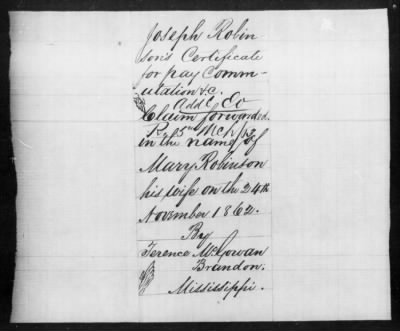 Joseph Robin
son's Certificate
for pay Comm-
utation &c.
Addl Ev
Claim forwarded
in the name of
Mary Robinson
his wife on the 24th
November 1862.
By
Terence McGowan
Brandon.
Mississippi.